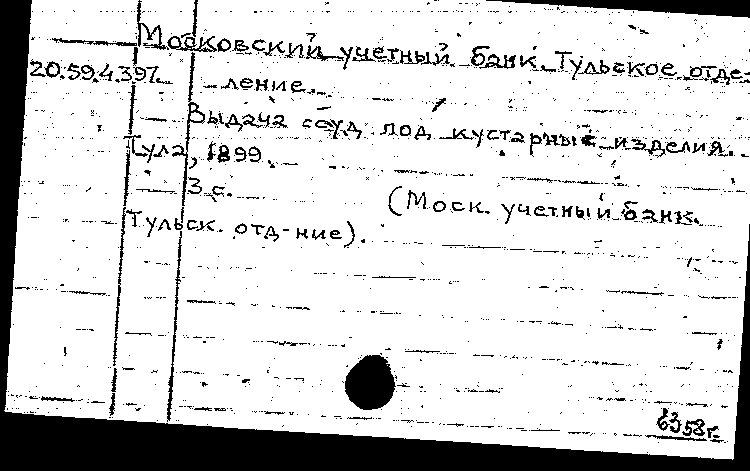 Московский учетный банк. Тульское отде-
20.59.4.397. ление.
Выдача ссуд под кустарные изделия.
Тула, 1899.
3 с. (Моск. учетный банк.
Тульск. отд-ние).